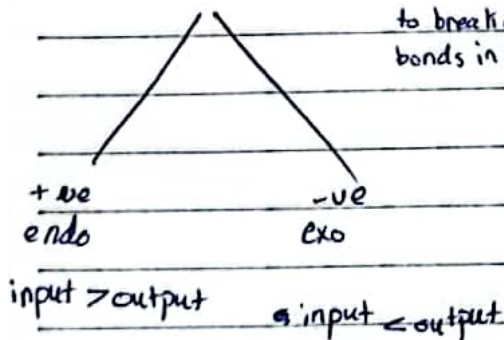 to break
bonds in
+ve -ve
endo exo
input > output
input < output